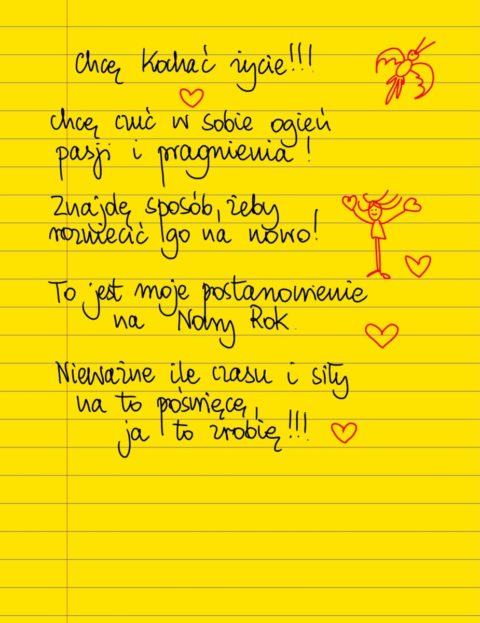 Chcę kochać życie!!!
chcę czuć w sobie ogień
pasji i pragnienia!
Znajdę sposób, żeby
rozniecić go na nowo!
To jest moje postanowienie
na Nowy Rok.
Nieważne ile czasu i siły
na to poświęcę,
ja to zrobię!!!